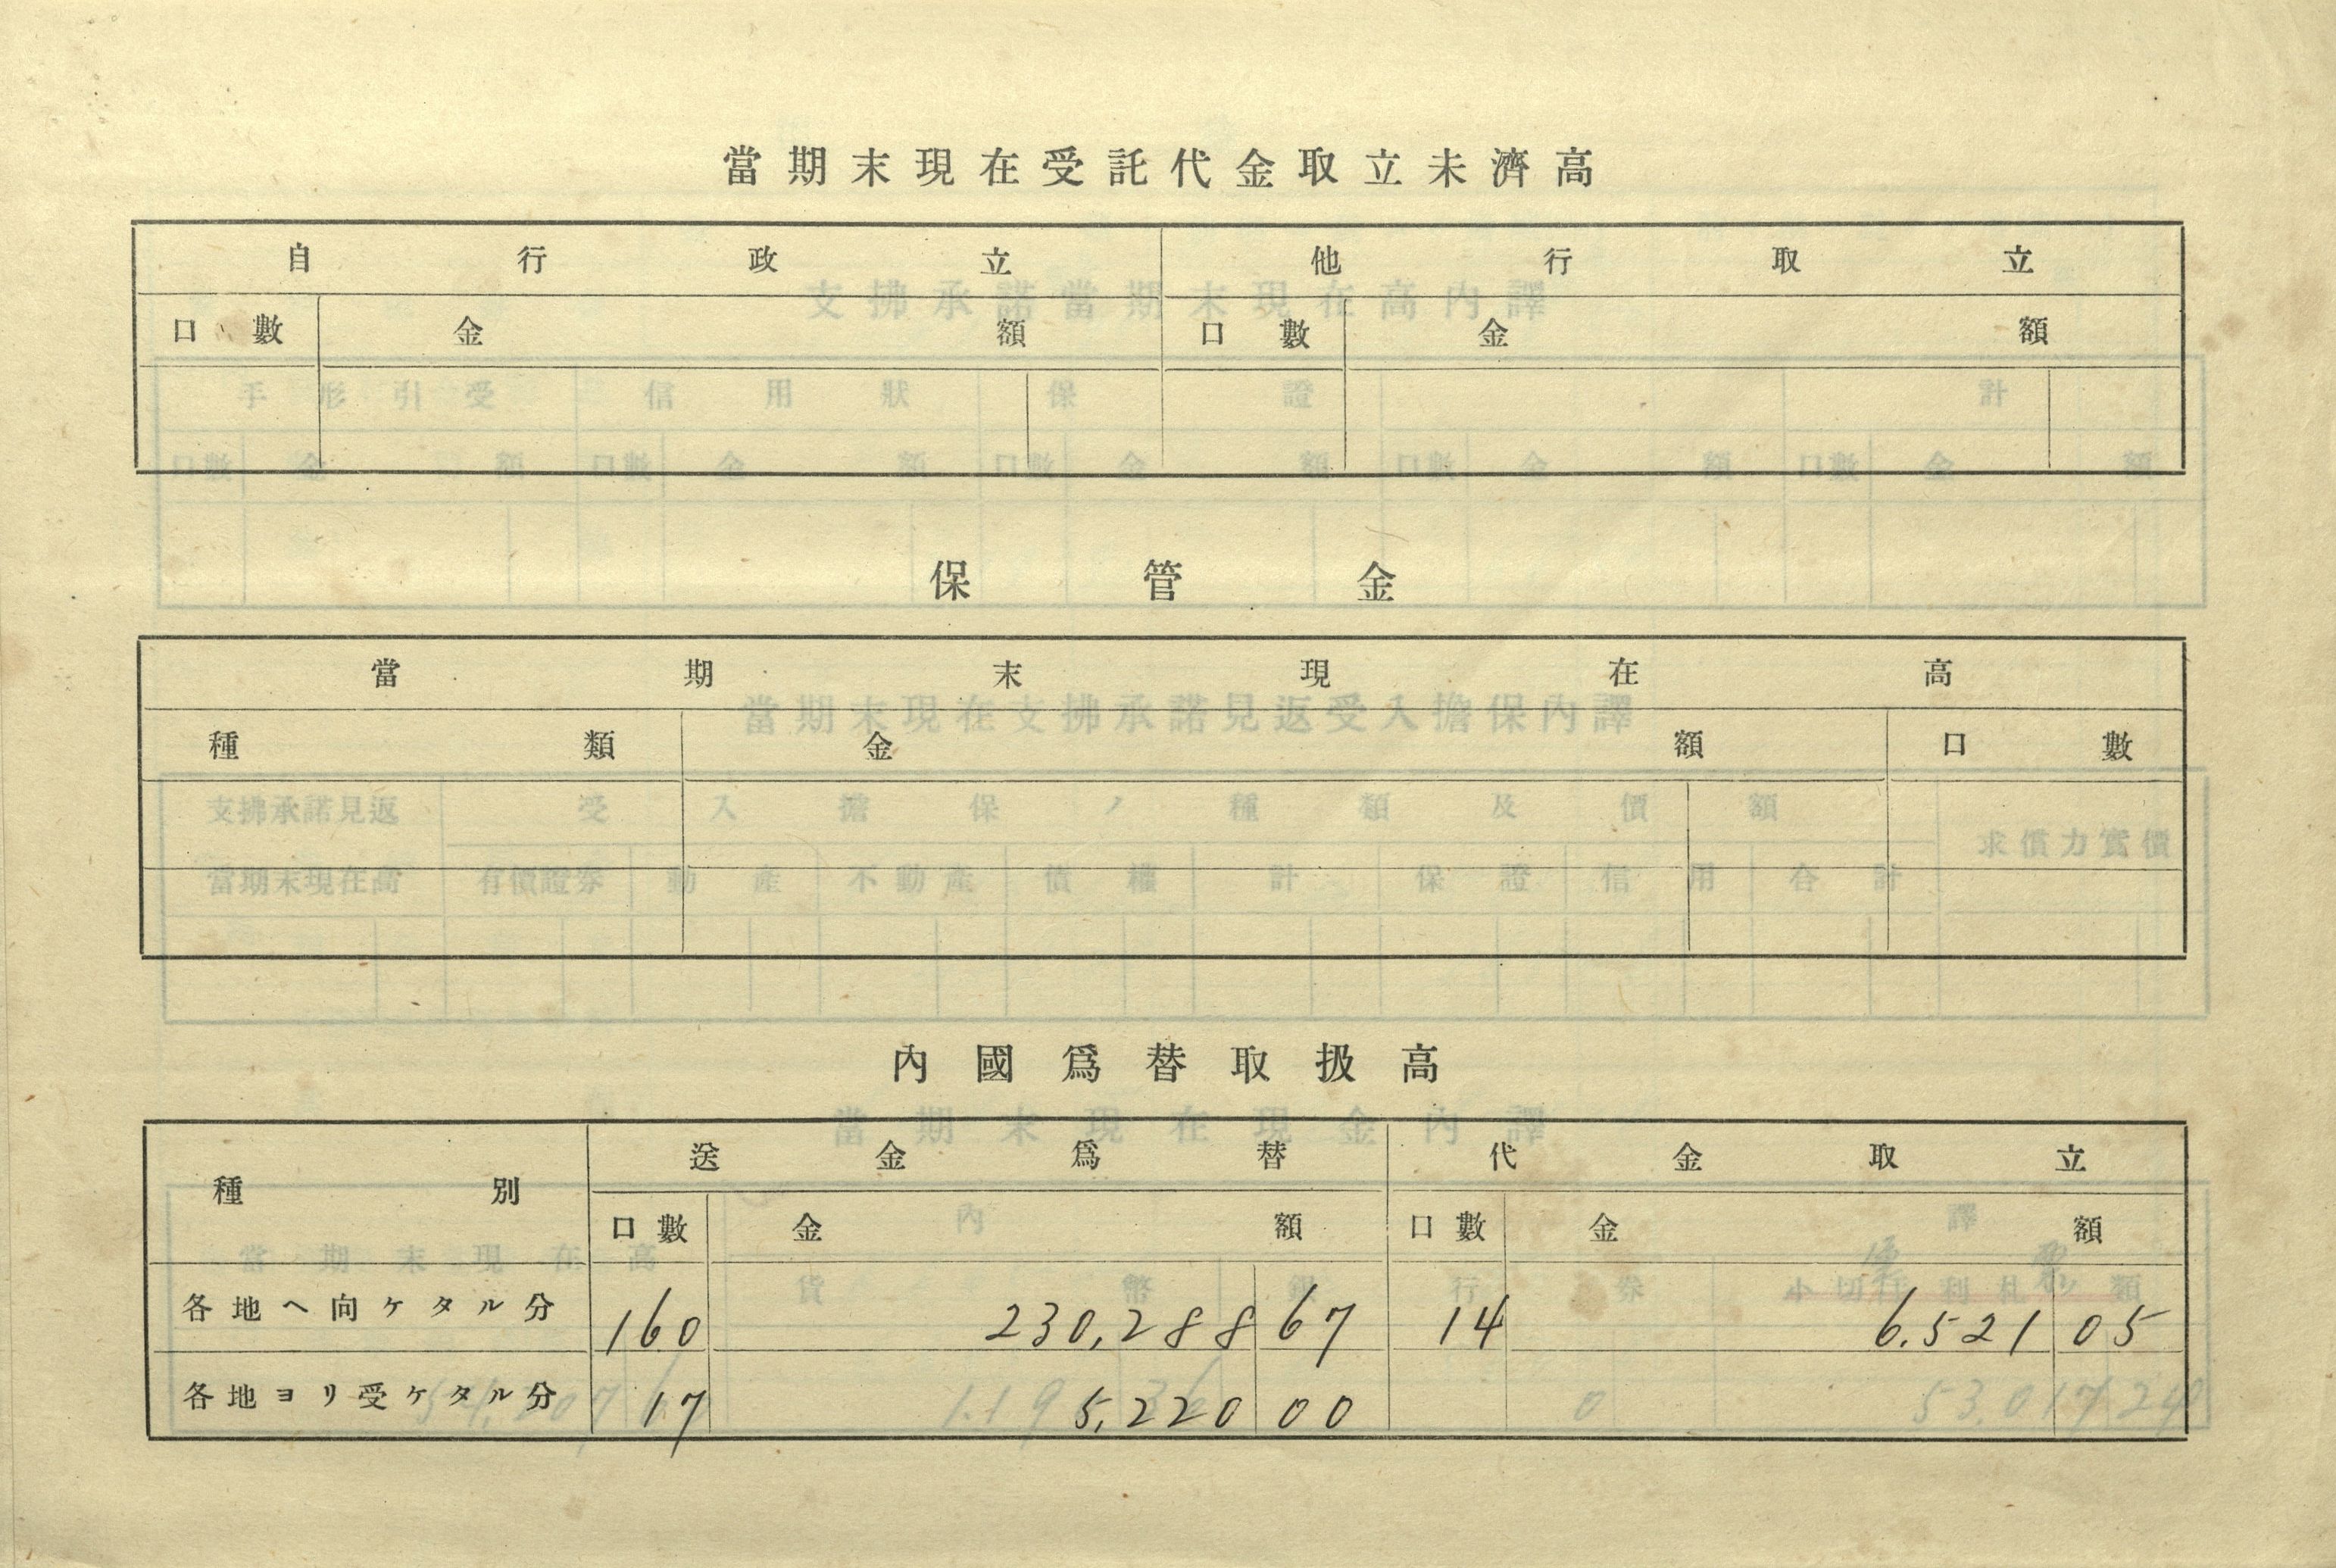 當期末現在受託代金取立未濟高
自行政立 他行取立
口數 金額 口數 金額
保管金
當期末現在高
種類 金額 口數
內國爲替取扱高
種別 送金爲替 代金取立
口數 金額 口數 金額
各地ヘ向ケタル分 160 230,288 67 14 6.521 05
各地ヨリ受ケタル分 17 5,220 00